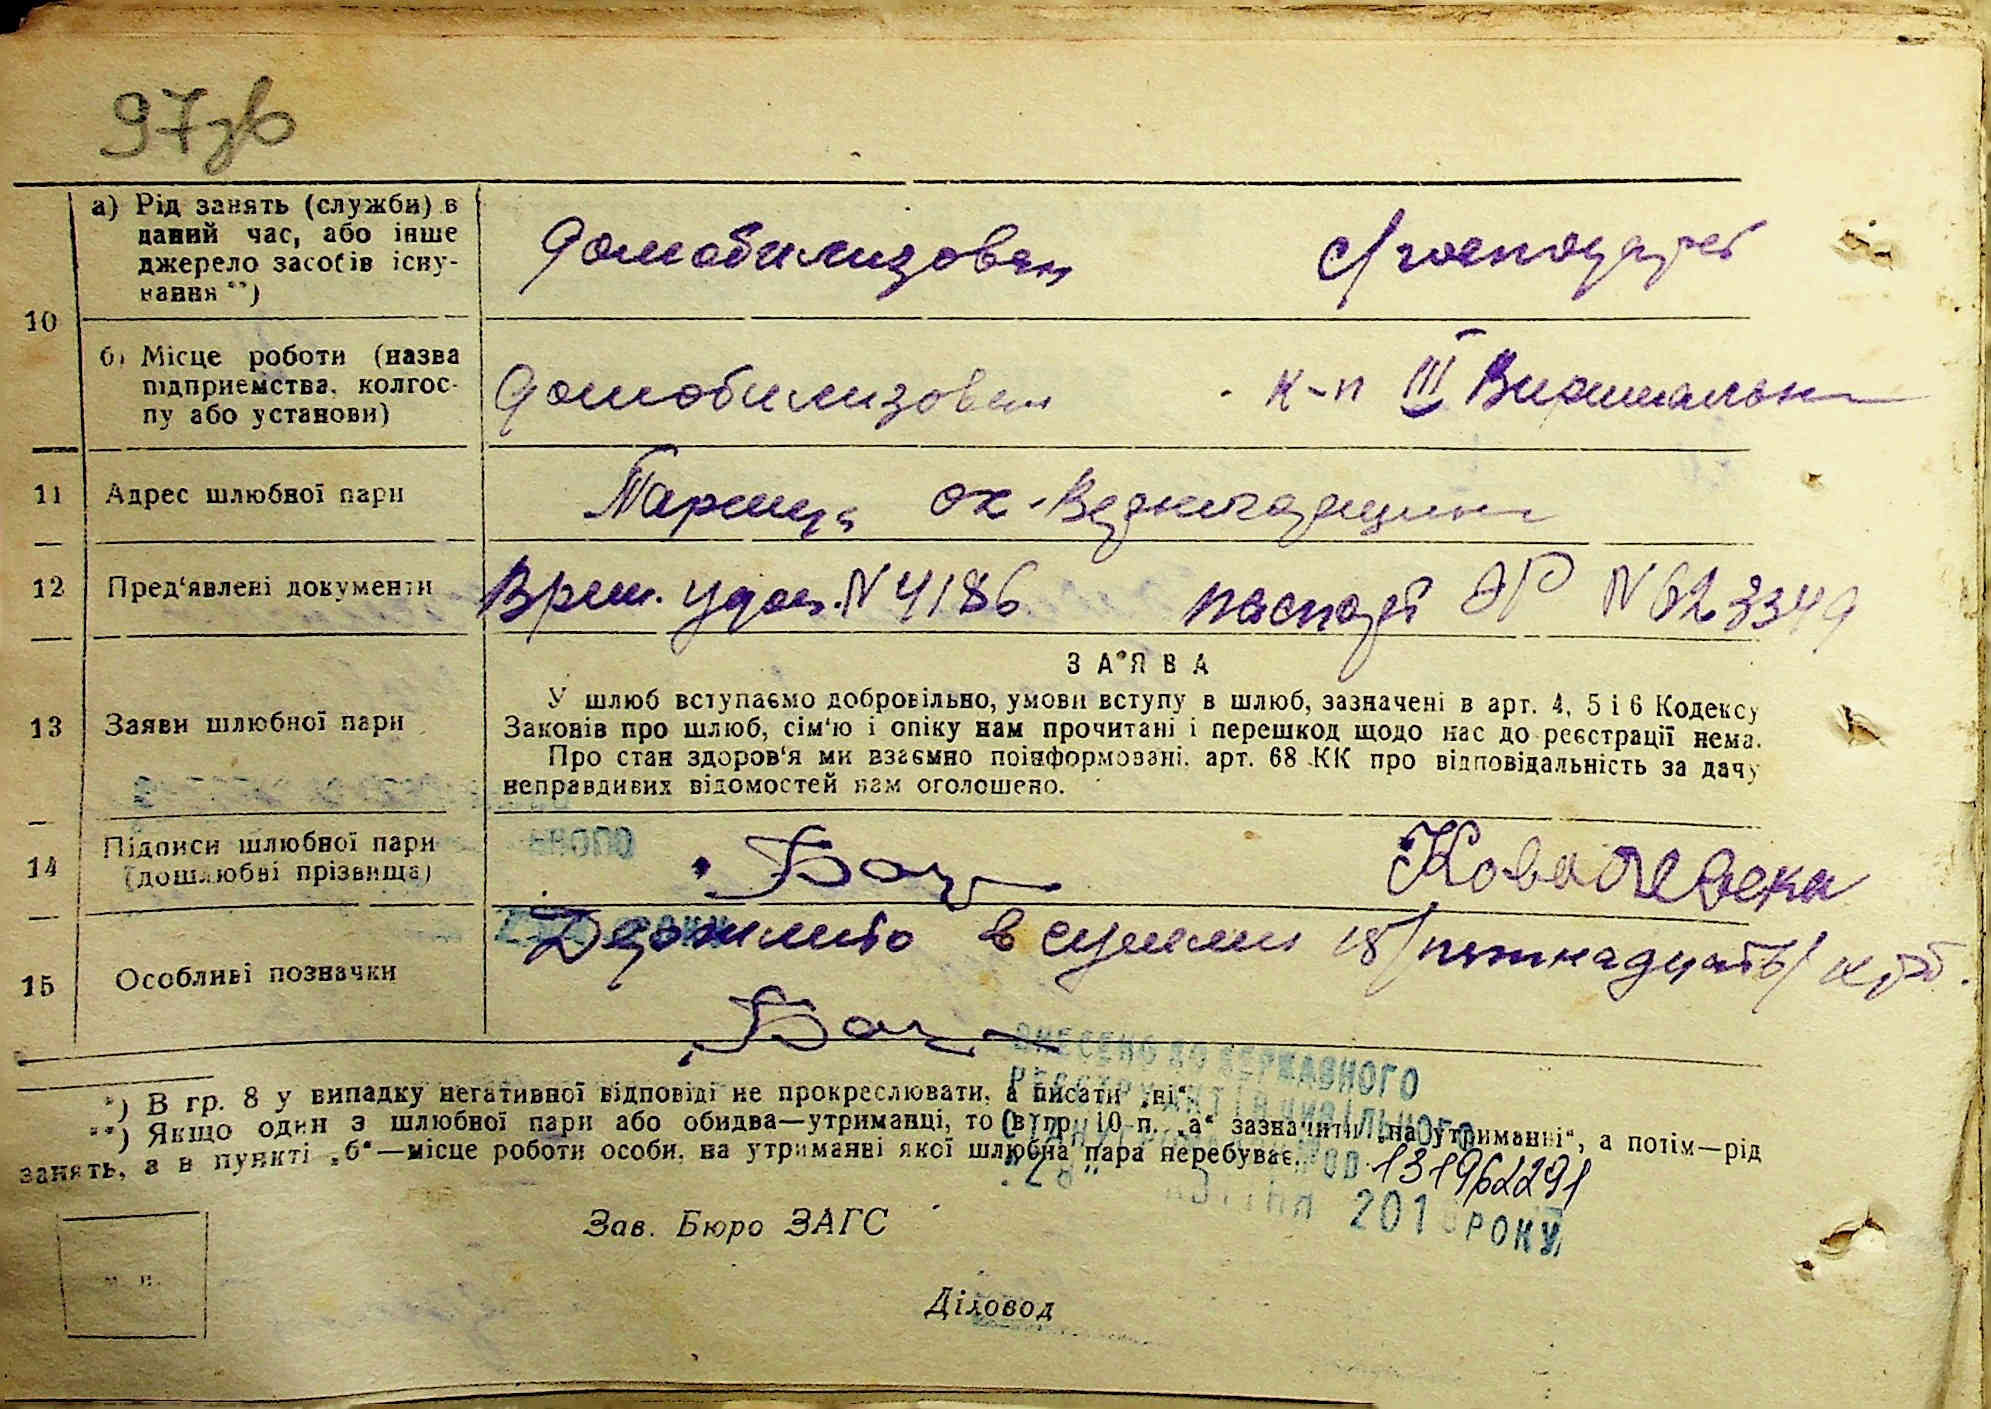 97зв
10
а) Рід занять (служби) в
даний час, або інше
джерело засобів існу-
вання **)
домобилизован
с/господарст
б) Місце роботи (назва
підприємства, колгос-
пу або установи)
домобилизован
к-п III Виришальн
11 Адрес шлюбної пари
12 Пред'явлені документи
Врем. удов. N 4186 паспорт N 623349
ЗАЯВА
13 Заяви шлюбної пари
У шлюб вступаємо добровільно, умови вступу в шлюб, зазначені в арт. 4, 5 і 6 Кодексу
Законів про шлюб, сім'ю і опіку нам прочитані і перешкод щодо нас до реєстрації нема.
Про стан здоров'я ми взаємно поінформовані, арт. 68 КК про відповідальність за дачу
неправдивих відомостей нам оголошено.
14 Підписи шлюбної пари
(дошлюбні прізвища)
15 Особливі позначки
в сумми 15/пятнадцать/ крб.
ВНЕСЕНО ДО ДЕРЖАВНОГО
РЕЄСТРУ АКТІВ ЦИВІЛЬНОГО
*) В гр. 8 у випадку негативної відповіді не прокреслювати, а писати „ні“.
**) Якщо один з шлюбної пари або обидва—утриманці, то в гр. 10 п. „а“ зазначити „на утриманні“, а потім—рід
занять, а в пункті „б“—місце роботи особи, на утриманні якої шлюбна пара перебуває.
131962291
201 РОКУ
Зав. Бюро ЗАГС
м. п.
Діловод